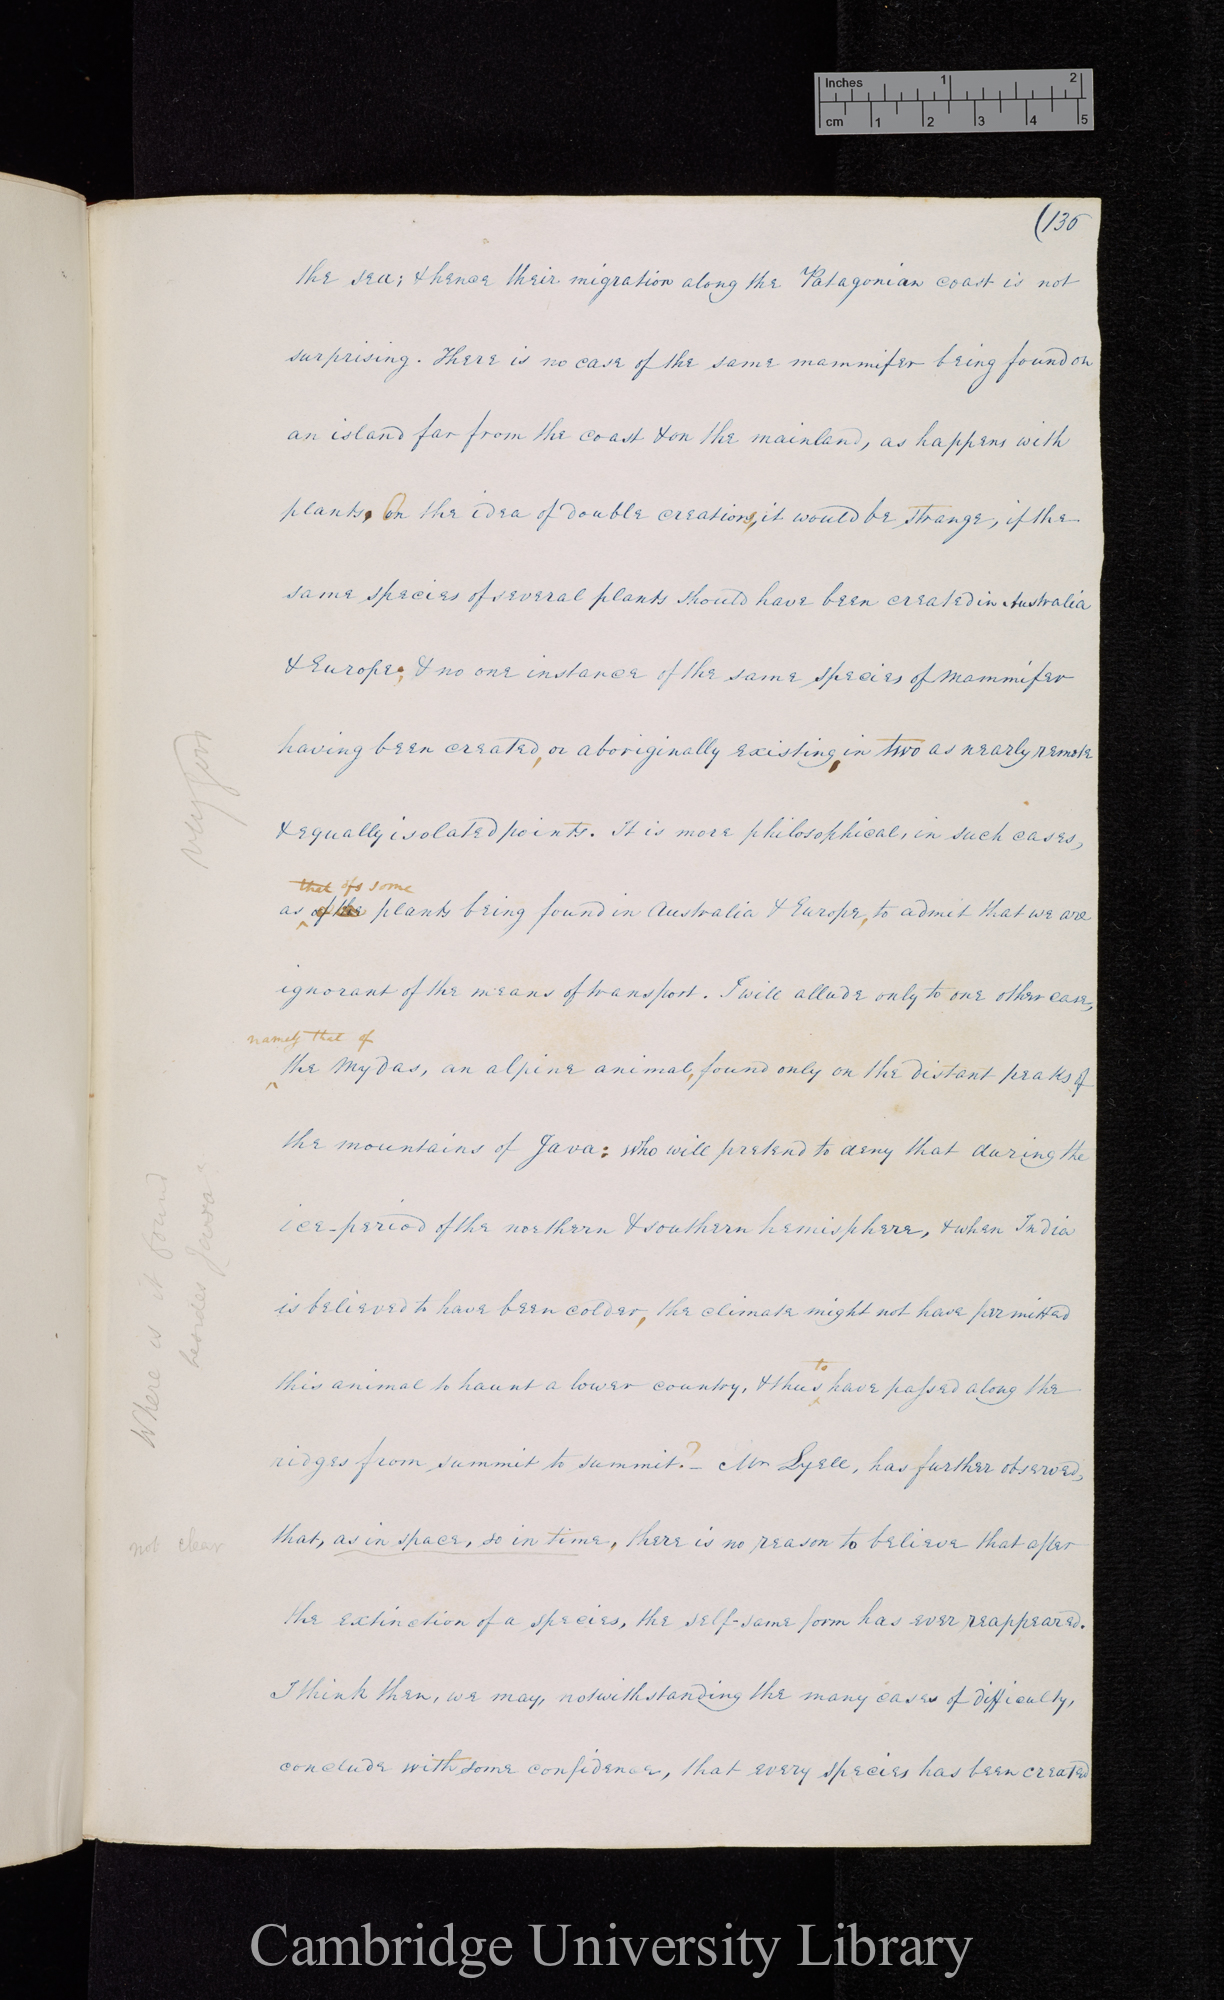 Inches 1 2
cm 1 2 3 4 5
(135
the sea; & hence their migration along the Patagonian coast is not
surprising. There is no case of the same mammifer being found on
an island far from the coast & on the mainland, as happens with
plants. On the idea of double creations, it would be strange, if the
same species of several plants should have been created in Australia
& Europe; & no one instance of the same species of mammifer
having been created, or aboriginally existing, in two as nearly remote
very good
& equally isolated points. It is more philosophical, in such cases,
that of some
as of the plants being found in Australia & Europe, to admit that we are
ignorant of the means of transport. I will allude only to one other case,
namely that of
the Mydas, an alpine animal, found only on the distant peaks of
the mountains of Java: who will pretend to deny that during the
Where is it found
besides Java
ice-period of the northern & southern hemisphere, & when India
is believed to have been colder, the climate might not have permitted
to
this animal to haunt a lower country, & thus have passed along the
ridges from summit to summit? – Mr Lyell, has further observed,
not clear
that, as in space, so in time, there is no reason to believe that after
the extinction of a species, the self-same form has ever reappeared.
I think then, we may, notwithstanding the many cases of difficulty,
conclude with some confidence, that every species has been created
Cambridge University Library